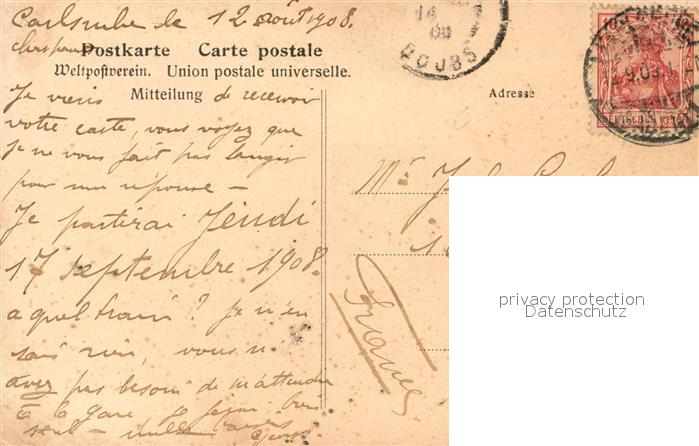 Carlsruhe le 12 août 1908.
Postkarte Carte postale
Weltpostverein. Union postale universelle.
Mitteilung
Adresse
Je viens de recevoir
votre carte, vous voyez que
je ne vous fait pas languir
pour ma réponse —
Je partirai Jeudi
17 septembre 1908.
a quel train? Je n'en
sais rien, vous n'
avez pas besoin de m'attendre
à la gare je
seul —
Mr
France
14
08
DOUBS
DEUTSCHES REICH
privacy protection
Datenschutz